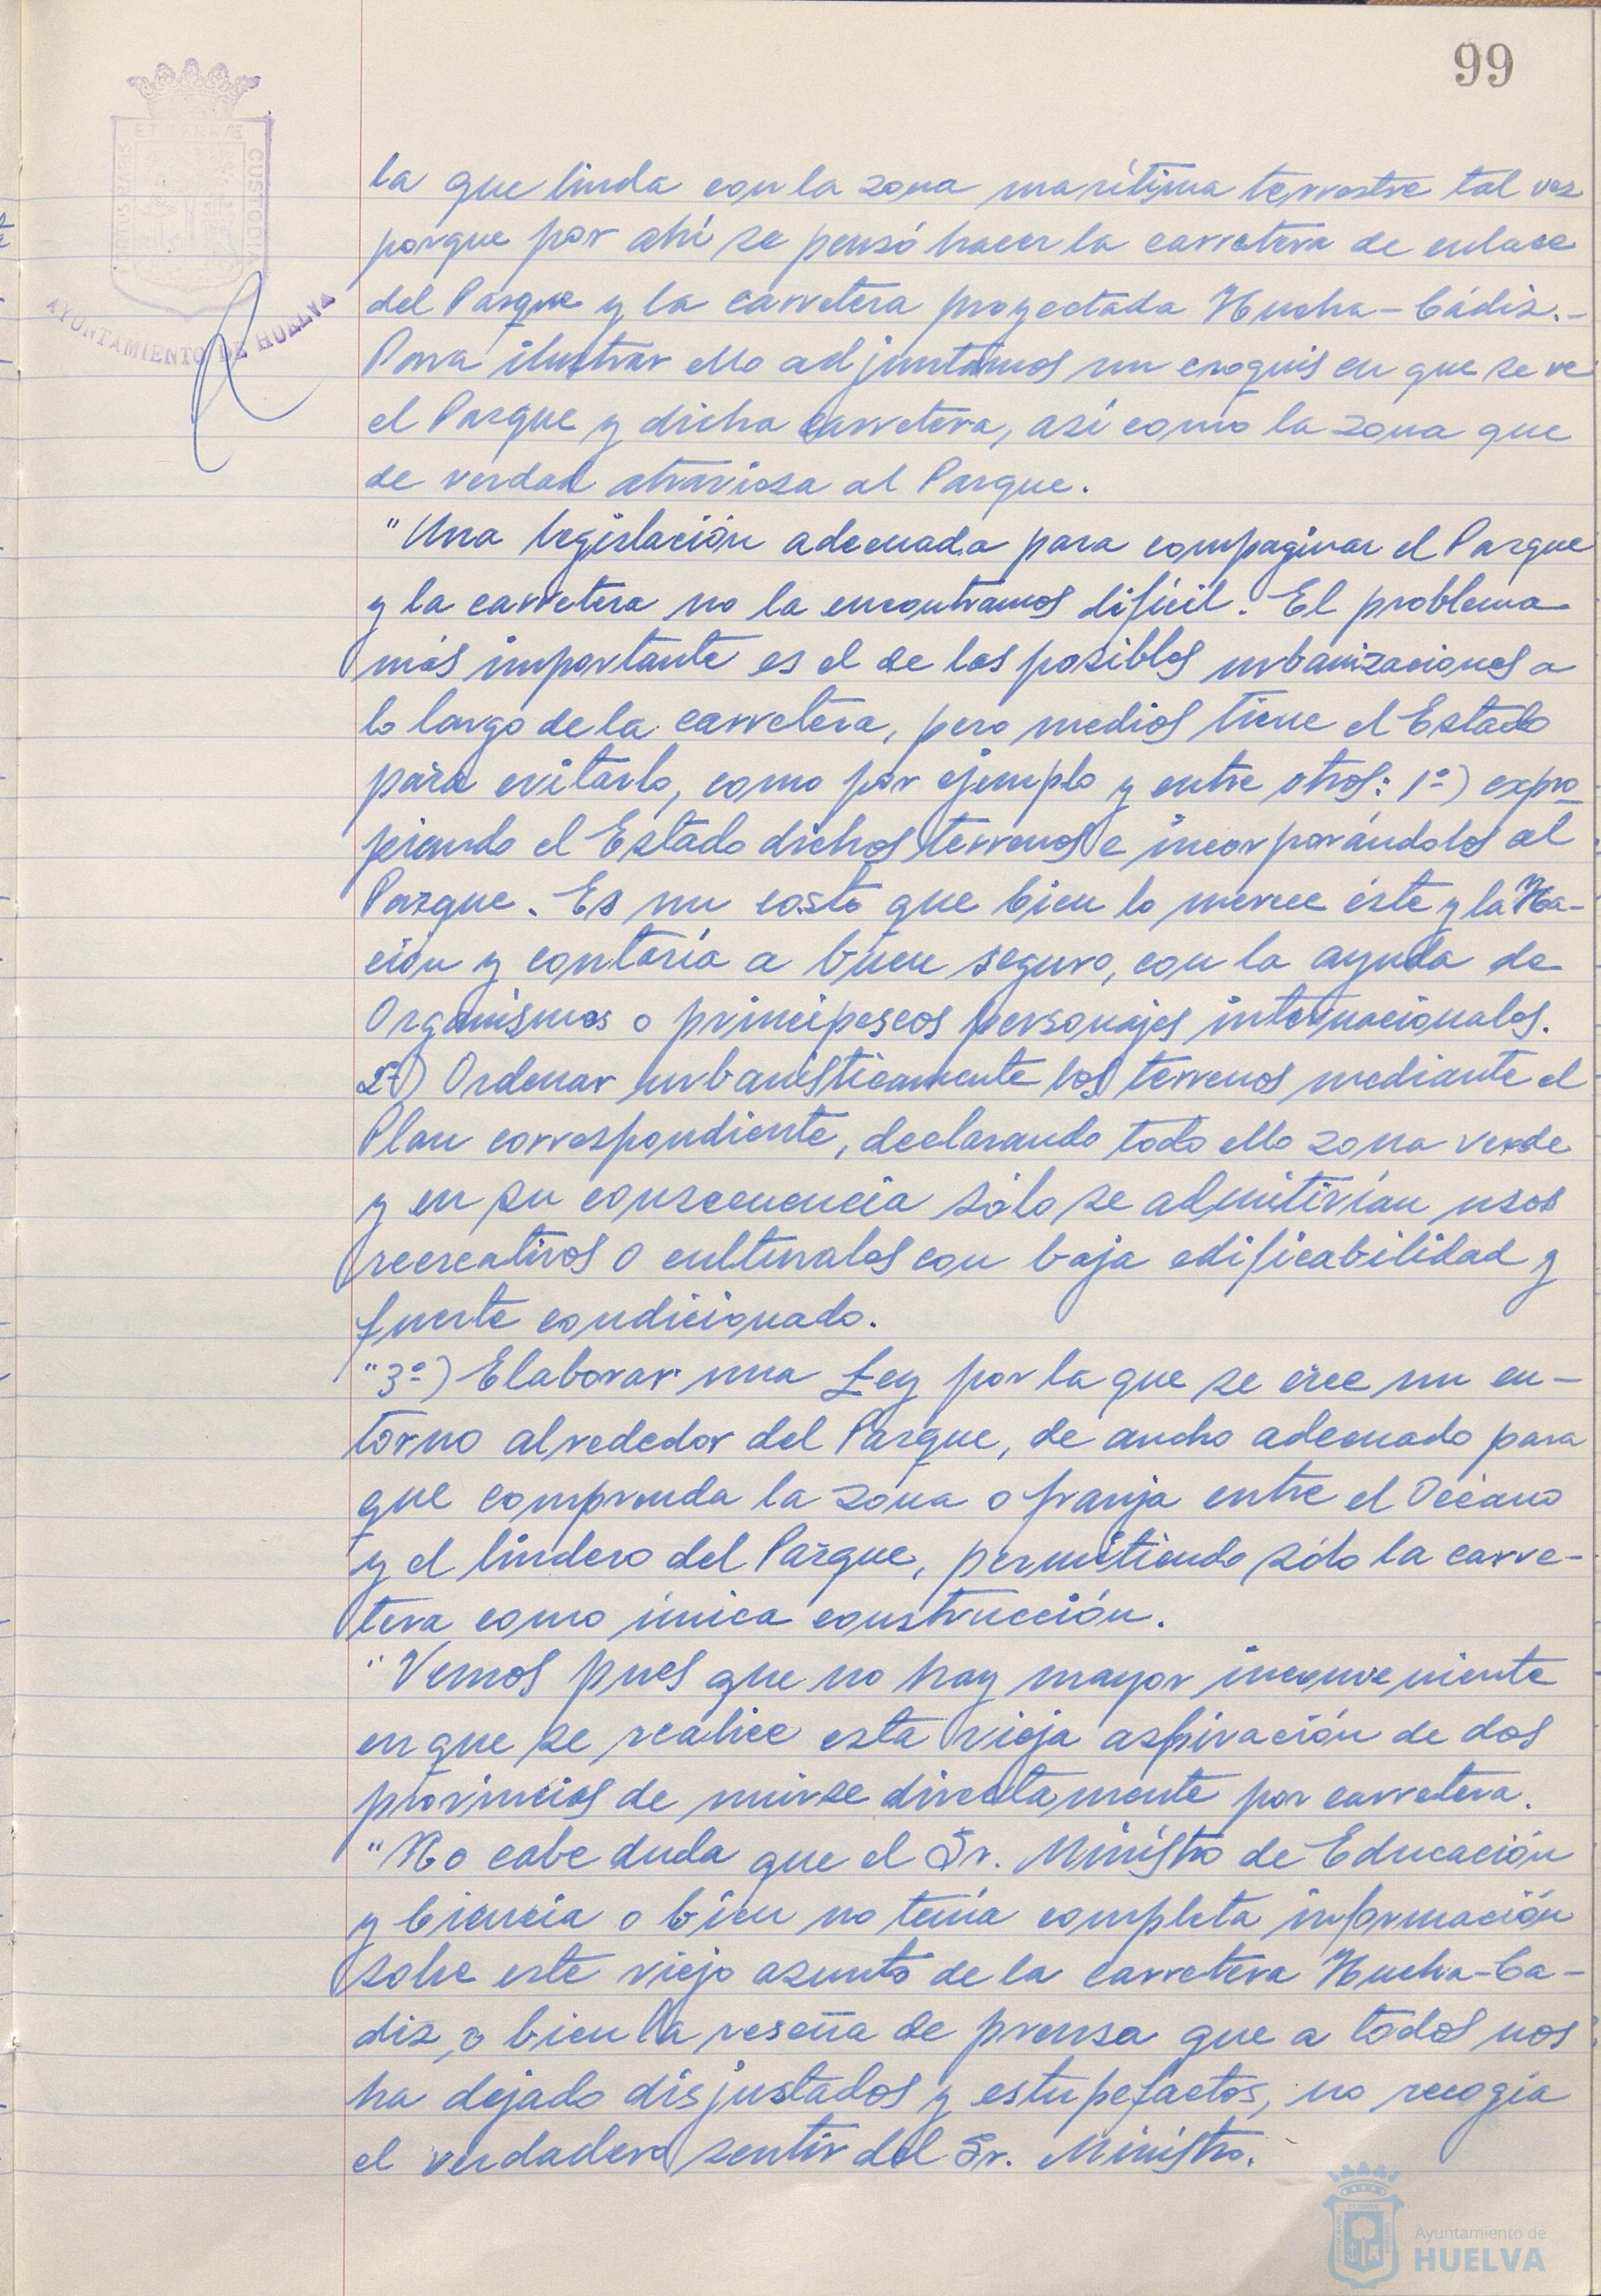 99
ET TERRÆ
PORTUS MARIS
CUSTODIA
AYUNTAMIENTO DE HUELVA
la que linda con la zona marítima terrestre tal vez
porque por ahí se pensó hacer la carretera de enlace
del Parque y la carretera proyectada Huelva-Cádiz.-
Para ilustrar ello adjuntamos un croquis en que se ve
el Parque y dicha carretera, así como la zona que
de verdad atraviesa al Parque.
"Una legislación adecuada para compaginar el Parque
y la carretera no la encontramos difícil. El problema
más importante es el de las posibles urbanizaciones a
lo largo de la carretera, pero medios tiene el Estado
para evitarlo, como por ejemplo y entre otros: 1º) expro-
piando el Estado dichos terrenos e incorporándolos al
Parque. Es un costo que bien lo merece éste y la Na-
ción y contaría a buen seguro, con la ayuda de
Organismos o principescos personajes internacionales.
2º) Ordenar urbanísticamente los terrenos mediante el
Plan correspondiente, declarando todo ello zona verde
y en su consecuencia sólo se admitirían usos
recreativos o culturales con baja edificabilidad y
fuerte condicionado.
"3º) Elaborar una Ley por la que se cree un en-
torno alrededor del Parque, de ancho adecuado para
que comprenda la zona o franja entre el Océano
y el lindero del Parque, permitiendo sólo la carre-
tera como única construcción.
"Vemos pues que no hay mayor inconveniente
en que se realice esta vieja aspiración de dos
provincias de unirse directamente por carretera.
"No cabe duda que el Sr. Ministro de Educación
y Ciencia o bien no tenía completa información
sobre este viejo asunto de la carretera Huelva-Ca-
diz, o bien la reseña de prensa que a todos nos
ha dejado disjustados y estupefactos, no recogía
el verdadero sentir del Sr. Ministro.
Ayuntamiento de
HUELVA